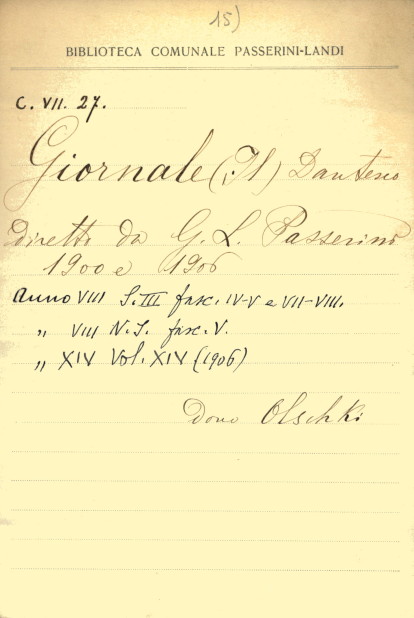 15)
BIBLIOTECA COMUNALE PASSERINI-LANDI
C. VII. 27.
Giornale (Il) Dantesco
Diretto da G. L. Passerini
1900 e 1906
Anno VIII S. III fasc. IV-V e VII-VIII.
„ VIII N.S. fasc. V.
„ XIV Vol. XIV (1906)
Dono Olschki